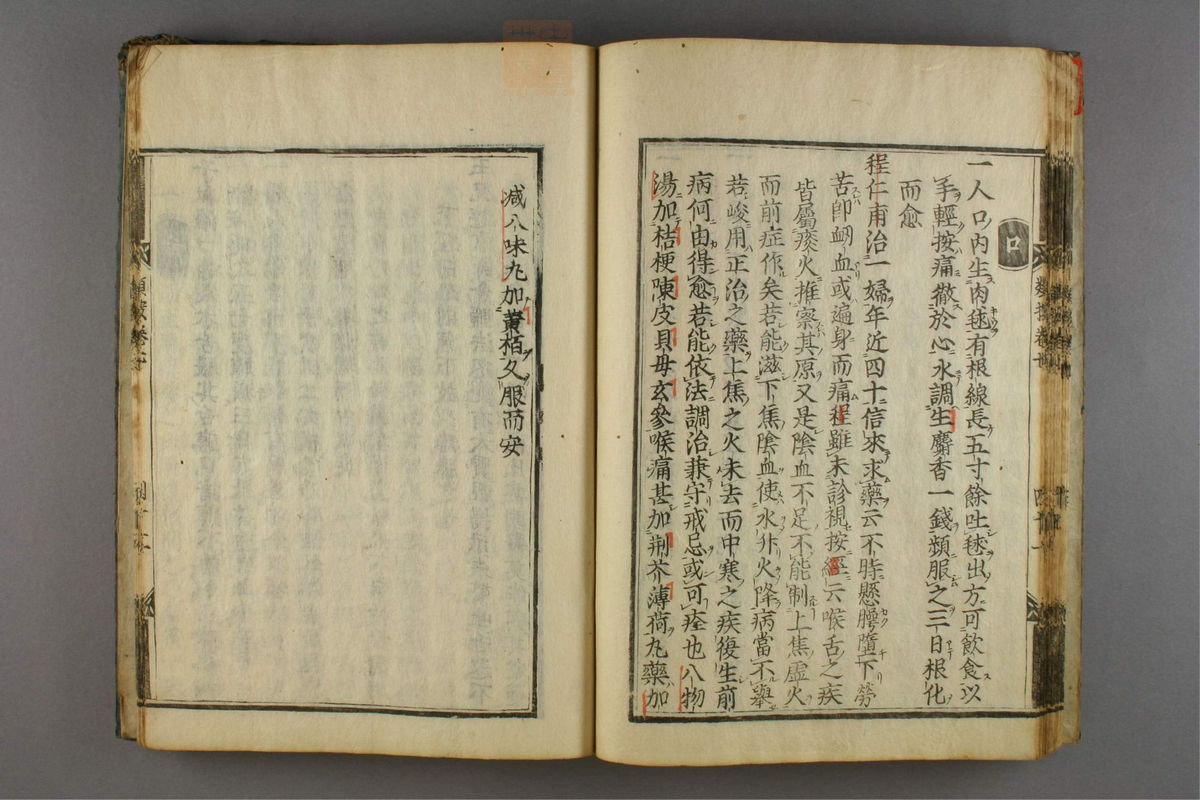 口
一人口内生肉毬有根線長五寸餘吐毬出方可飲食以
手輕按痛徹於心水調生麝香一錢頻服之三日根化
而愈
程仁甫治一婦年近四十信來求藥云不時懸壅墮下勞
苦即衂血或遍身而痛程雖未診視按經云喉舌之疾
皆屬痰火推察其原又是陰血不足不能制上焦虛火
而前症作矣若能滋下焦陰血使水升火降病當不舉
若峻用正治之藥上焦之火未去而中寒之疾復生前
病何由得愈若能依法調治兼守戒忌或可痊也八物
湯加桔梗陳皮貝母玄參喉痛甚加荆芥薄荷丸藥加
減八味丸加黄栢久服而安